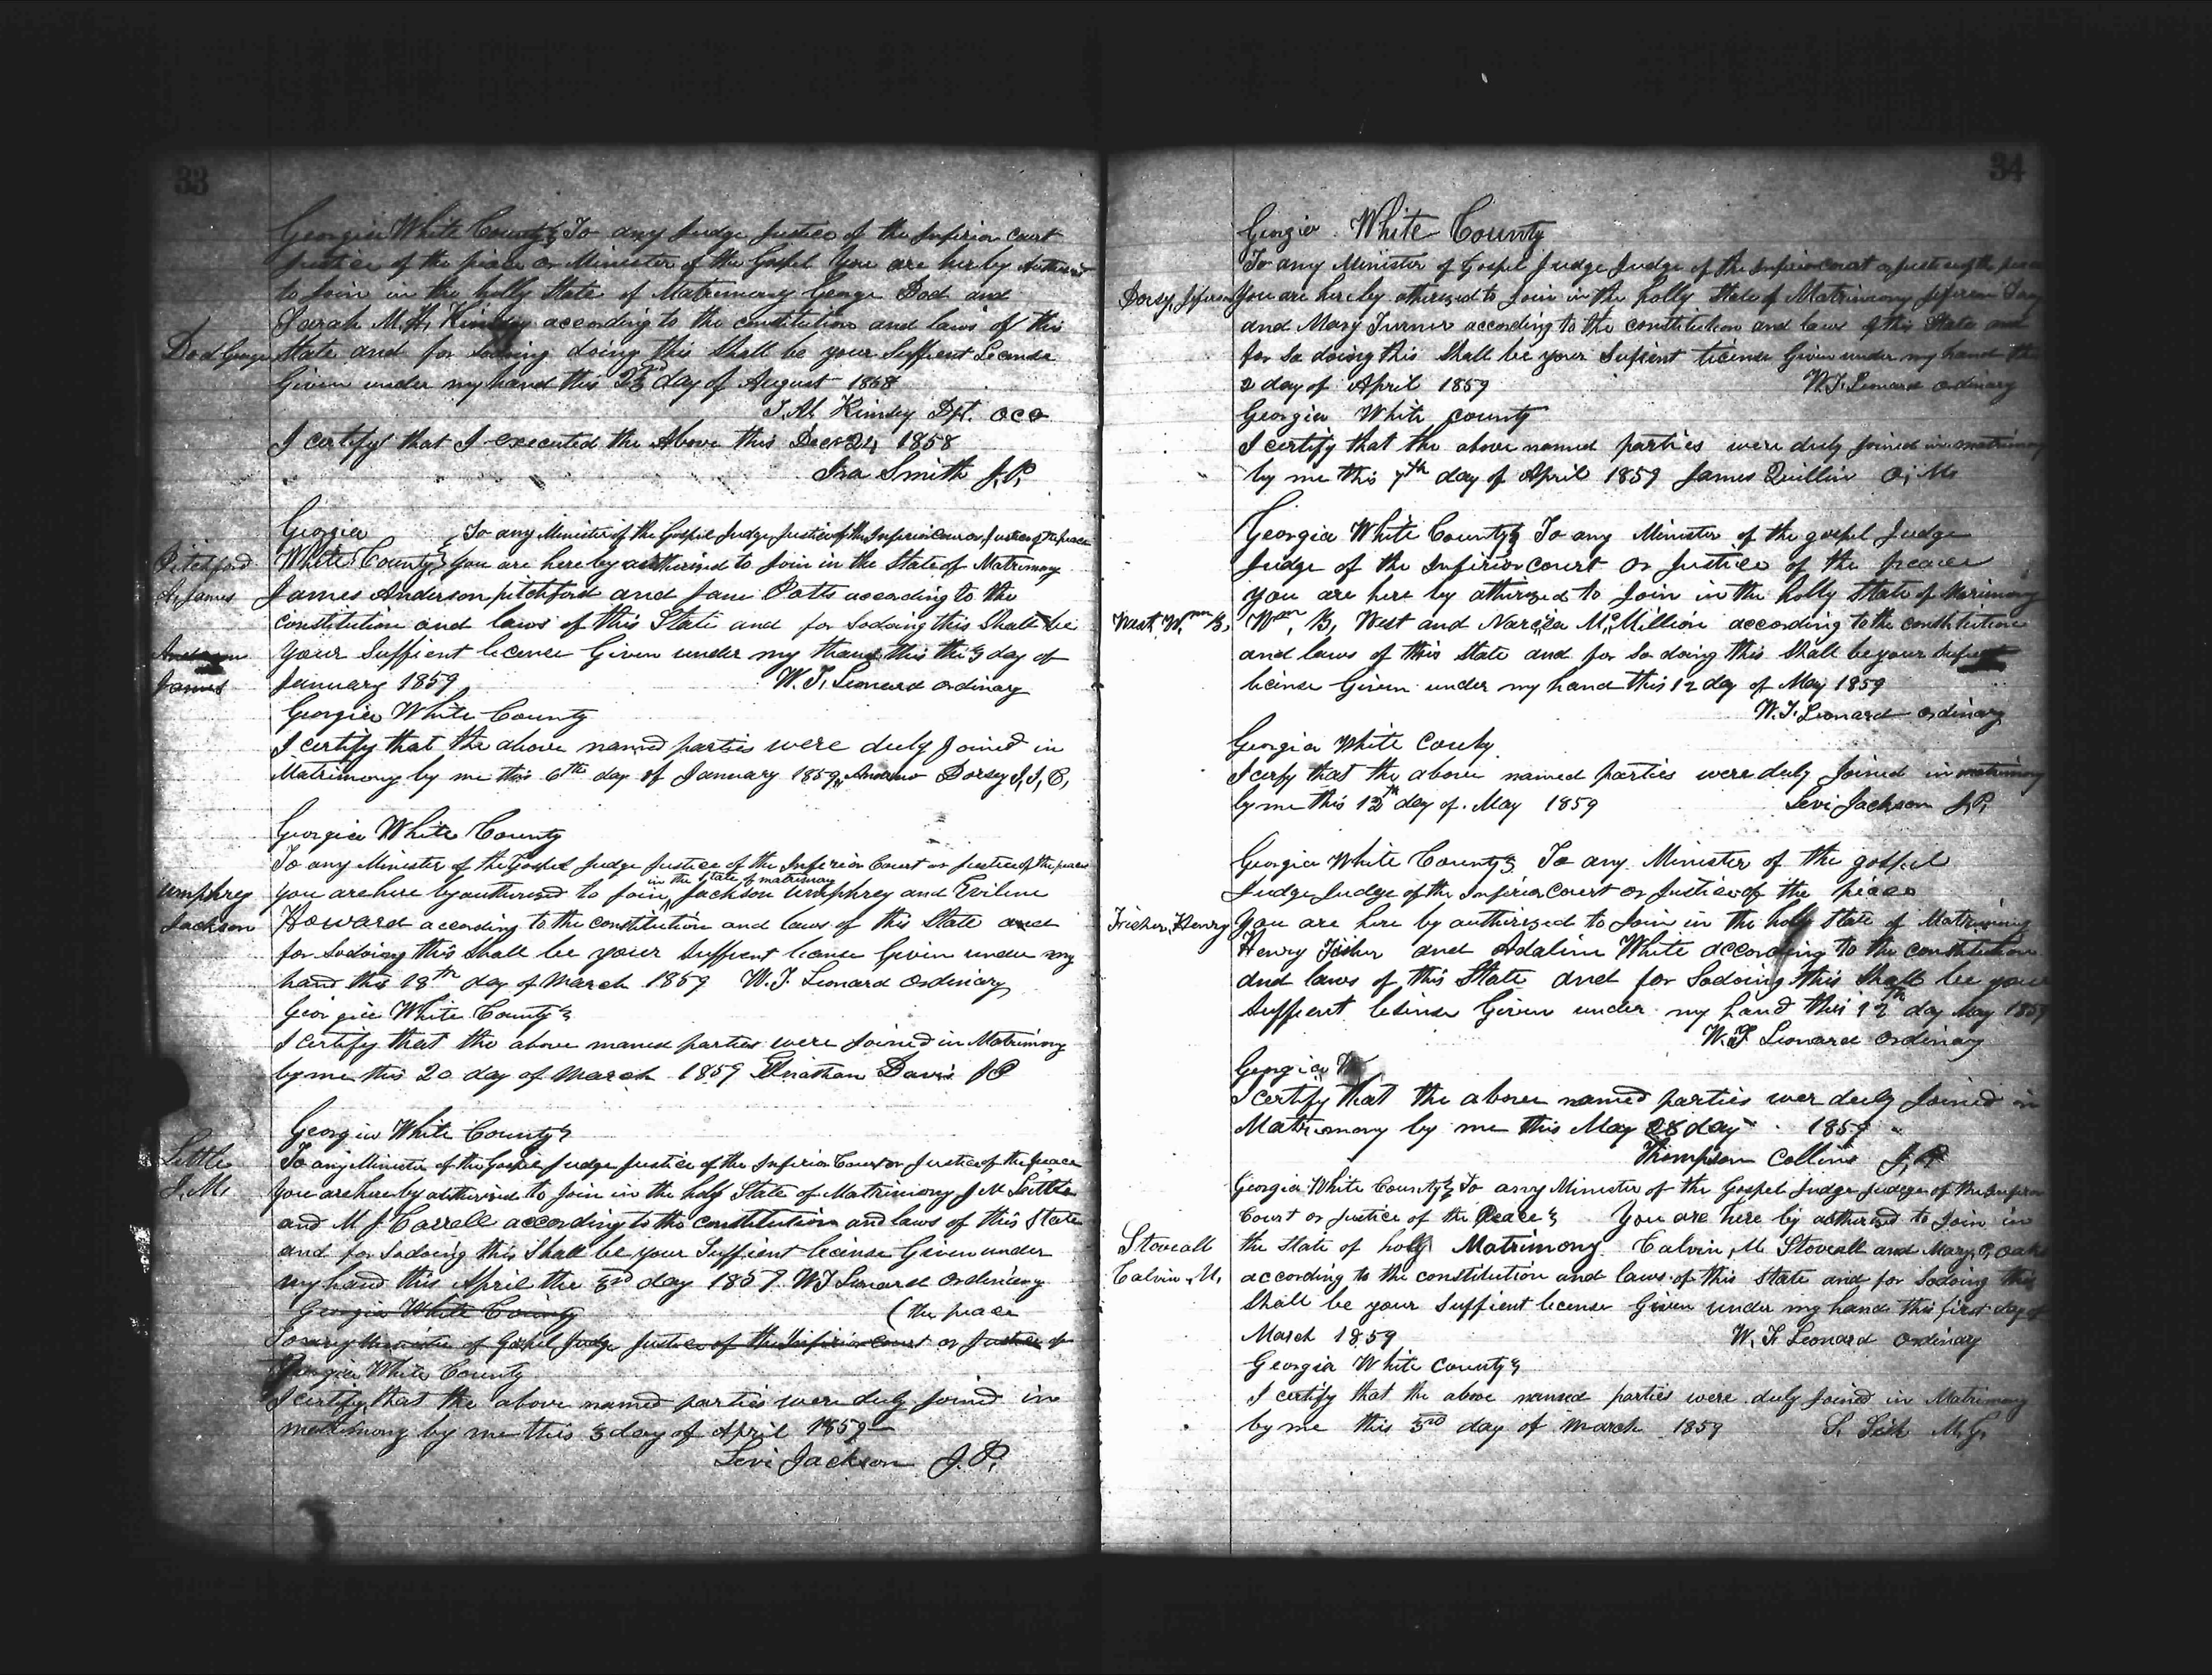 33
Georgia White County To any Judge Justice of the Inferior Court
Justice of the piece or Minister of the Gospel You are herby
to Join in the holly State of Matrimony George Dod and
Sarah M. according to the constitution and laws of this
Dod George State and for Sodoing doing this Shall be your Suffient Licanse
Given under my hand this day of August
Kinsey Dpt. oco
I certify that I executed the Above this Decr 24 1858
Ira Smith J.P.
Georgia To any Minister of the Gospel Judge Justice of the Inferior Court or Justice of the peace
Pitchford White County You are hereby autherised to Join in the State of Matrimony
A, James James Anderson pitchford and Jane Potts according to the
constitution and laws of this State and for Sodoing this Shall be
your Suffient licence Given under my hand this the 3 day of
James January 1859 W. T, Leonard ordinary
Georgia White County
I certify that the above named parties were duly Joined in
Matrimony by me this 6th day of January 1859, Andrew Dorsey J, I, C,
Georgia White County
To any Minister of the Gospel Judge Justice of the Inferior Court or Justice of the peace
in the State of matrimony
Umphrey you are here by autherised to Join Jackson Umphrey and Eviline
Jackson Howard according to the constitution and laws of this State and
for Sodoing this Shall be your Suffient licanse Given under my
hand this 18th day of March 1859 W. T. Leonard Ordinary
Georgia White County
I certify that the above named parties were Joined in Matrimony
by me this 20 day of March 1859 Davis JP
Georgia White County
Little To any Minister of the Gospel Judge Justice of the Inferior Court or Justice of the peace
J. M, You are hereby autherised to Join in the holy State of Matrimony J M Little
and M J Carrell according to the constitution and laws of this State
and for Sodoing this Shall be your Suffient license Given under
my hand this April the 3rd day 1859 W T Leonard Ordinary
Georgia White County (the peace
To any Minister of Gospel Judge Justice of the Inferior court or Justice of
Georgia White County
I certify that the above named parties were duly Joined in
matrimony by me this 3 day of April 1859
Levi Jackson J. P.
34
Georgia White County
To any Minister of Gospel Judge Judge of the Inferior court or Justice of the peace
Dorsy, Jefferson You are hereby atherized to Join in the holly State of Matrimony
and Mary Turner according to the constitution and laws of this State and
for So doing this Shall be your Sufient license Given under my hand the
2 day of April 1859 W. T. Leonard ordinary
Georgia White county
I certify that the above named parties were duly Joined in matrimony
by me this 7th day of April 1859 James Quillin O, M.
Georgia White County To any Minister of the gospel Judge
Judge of the Inferior court or Justice of the peace
you are here by atherized to Join in the holly State of Marimony
West, Wm B, Wm, B, West and Narcisa McMillion according to the constitution
and laws of this State and for So doing this Shall be your
license Given under my hand this 12 day of May 1859
W. T. Leonard ordinary
Georgia White County
I cerfy that the above named parties were duly Joined in matrimony
by me this 12th day of May 1859 Levi Jackson J, P,
Georgia White County To any Minister of the gospel
Judge Judge of the Inferior Court or Justice of the piece
Frisher, Henry You are here by autherized to Join in the holy State of Matrimony
Henry Fisher and Adaline White according to the constitution
and laws of this State and for Sodoing this Shall be your
Suffient lisinse Given under my hand this 12th day May 1859
W. T Leonard Ordinary
Georgia W
I certify that the above named parties wer duly Joined in
Matrimony by me this May 28 day 1859
Thompson Collins J, P
Georgia White County To any Minister of the Gospel Judge Judge of the Inferior
Court or Justice of the Peace You are here by autherized to Join in
Stovall the State of holy Matrimony Calvin, M Stovall and Mary,
Calvin, M, according to the constitution and laws of this State and for Sodoing this
Shall be your Suffient license Given under my hand this first day of
March 1859 W, T. Leonard Ordinary
Georgia White County
I certify that the above named parties were duly Joined in Matrimony
by me this 3rd day of March 1859 M. G.